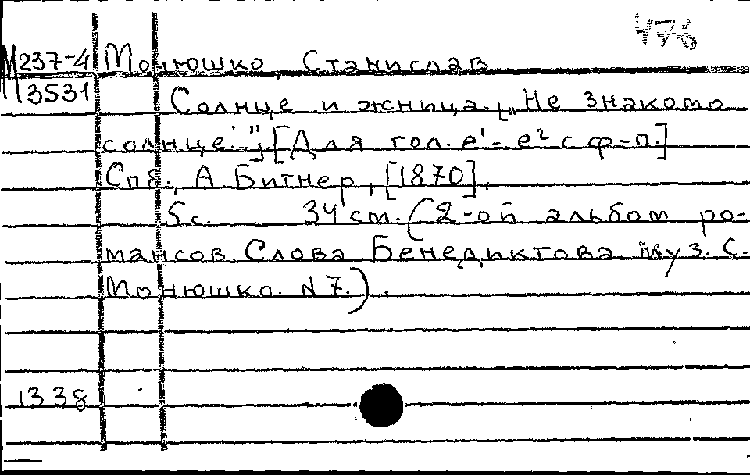 476
М 237-4 Монюшко, Станислав
3531
Солнце и жница. [„Не знакомо
солнце..."] [Для гол. e¹-e² с ф-п.]
Спб., А Битнер, [1870].
5 с. 34 см. (2-ой альбом ро-
мансов. Слова Бенедиктова. Муз. С.
Монюшко. N 7.).
1338